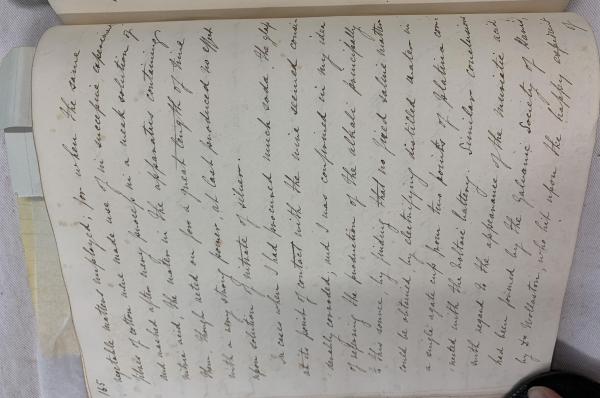 165
vegetable matters employed; for when the same
pieces of cotton were made use of in successive experiments
and washed after every process in a weak solution of
nitric acid the water in the apparatus containing
them, though acted on for a great length of time
with a very strong power at last produced no effect
upon solution of nitrate of silver.
In cases when I had procured much soda the glass
at its point of contact with the wire seemed consid-
erably corroded; and I was confirmed in my idea
of referring the production of the alkali principally
to this source by finding that no fixed saline matter
could be obtained by electrifying distilled water in
a single agate cup from two points of platina con-
nected with the Voltaic battery. Similar conclusions
with regard to the appearance of the muriatic acid
had been formed by the Galvanic Society of Paris,
by Dr Wollaston, who hit upon the happy expedient
of